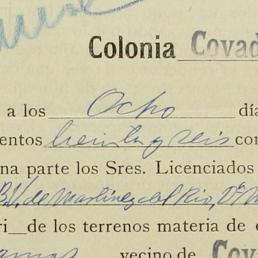 Colonia Covad
a los Ocho día
entos treinta y seis con
na parte los Sres. Licenciados
de Martinez del Rio,
ri de los terrenos materia de e
vecino de Cov